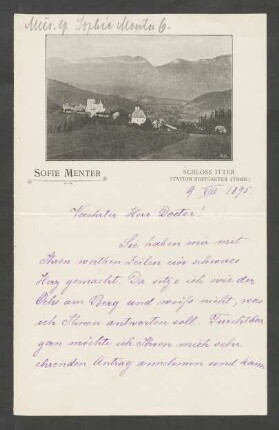 Sophie Menter
SOFIE MENTER
SCHLOSS ITTER
STATION HOPFGARTEN (TIROL)
9 VII 1895
Verehrter Herr Doctor!
Sie haben mir mit
Ihren werthen Zeilen ein schweres
Herz gemacht. Da sitze ich wie der
Ochs am Berg und weiss nicht, was
ich Ihnen antworten soll. Furchtbar
gern möchte ich Ihren mich sehr
ehrenden Antrag annehmen und kann